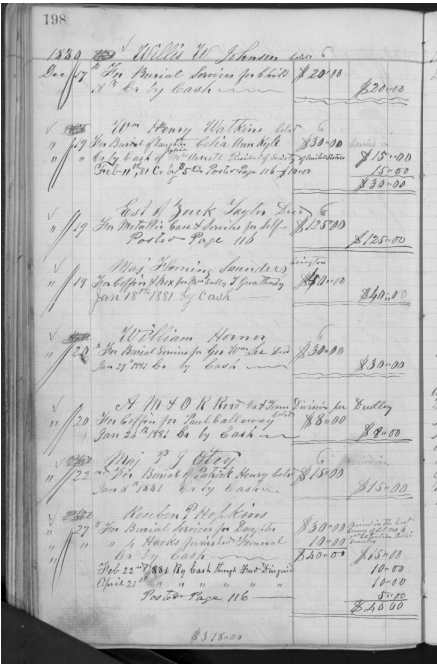 198
1880 Willis W Johnson Cold
Dec 17 To For Burial Services for Child $20.00
18th Cr by Cash $20.00
Wm Henry Watkins Cold
" 19 For Burial of Daughter Celia Ann Kyle $30.00
" " Cr by Cash of Wm Averett President of Society of United Sisters $15.00
Feb 10th 81 Cr by Posted Page 116 $10.00 15.00
$30.00
Est of Zack Taylor Decd
" 19 For Metallic Case & Services for Self $125.00
Posted Page 116 $125.00
Maj Fleming Saunders
" 19 For Coffin & Box for Mrs Sally
Jan 18th 1881 by Cash $40.00
William Horner
" 20 For Burial Services for Geo Wm Lee Decd $30.00
Jan 29 1881 Cr by Cash $30.00
A M & O R Road Va & Tenn Division per Dudley
" 20 For Coffin for Paul Calloway Cold $8.00
Jan 24th 1881 Cr by Cash $8.00
Maj P J Otey
" 22 For Burial of Patrick Henry Cold $15.00
Jan 8th 1881 Cr by Cash $15.00
Reuben P Hopkins
" 27 For Burial Services for Daughter $30.00
" " " 4 Hacks furnished Funeral 10.00
" Cr by Cash $40.00 $15.00
Feb 22nd 1881 By Cash through Fred Disguid 10.00
April 21st " " " " " 10.00
Posted Page 116 5.00
$40.00
$318.00